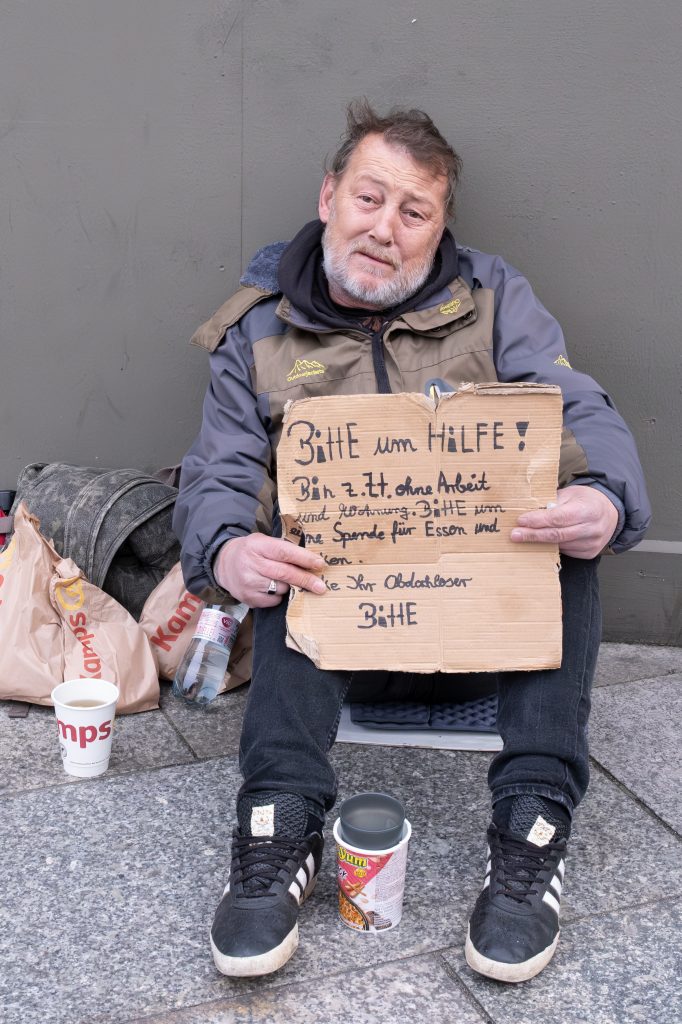 BittE um HiLFE!
Bin z.Zt. ohne Arbeit
und Wohnung. BittE um
eine Spende für Essen und
Ihr Obdachloser
BittE
Kamps
Kam
mps
Yum